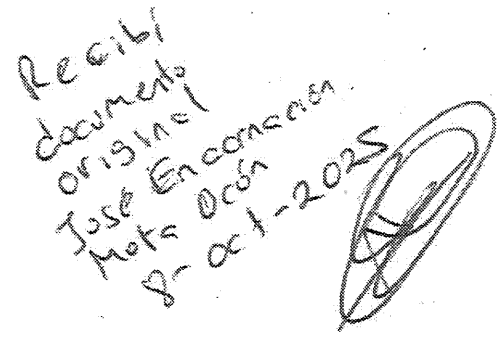 Recibí
documento
original
José Encarnación
Mota Ocón
8-oct-2025